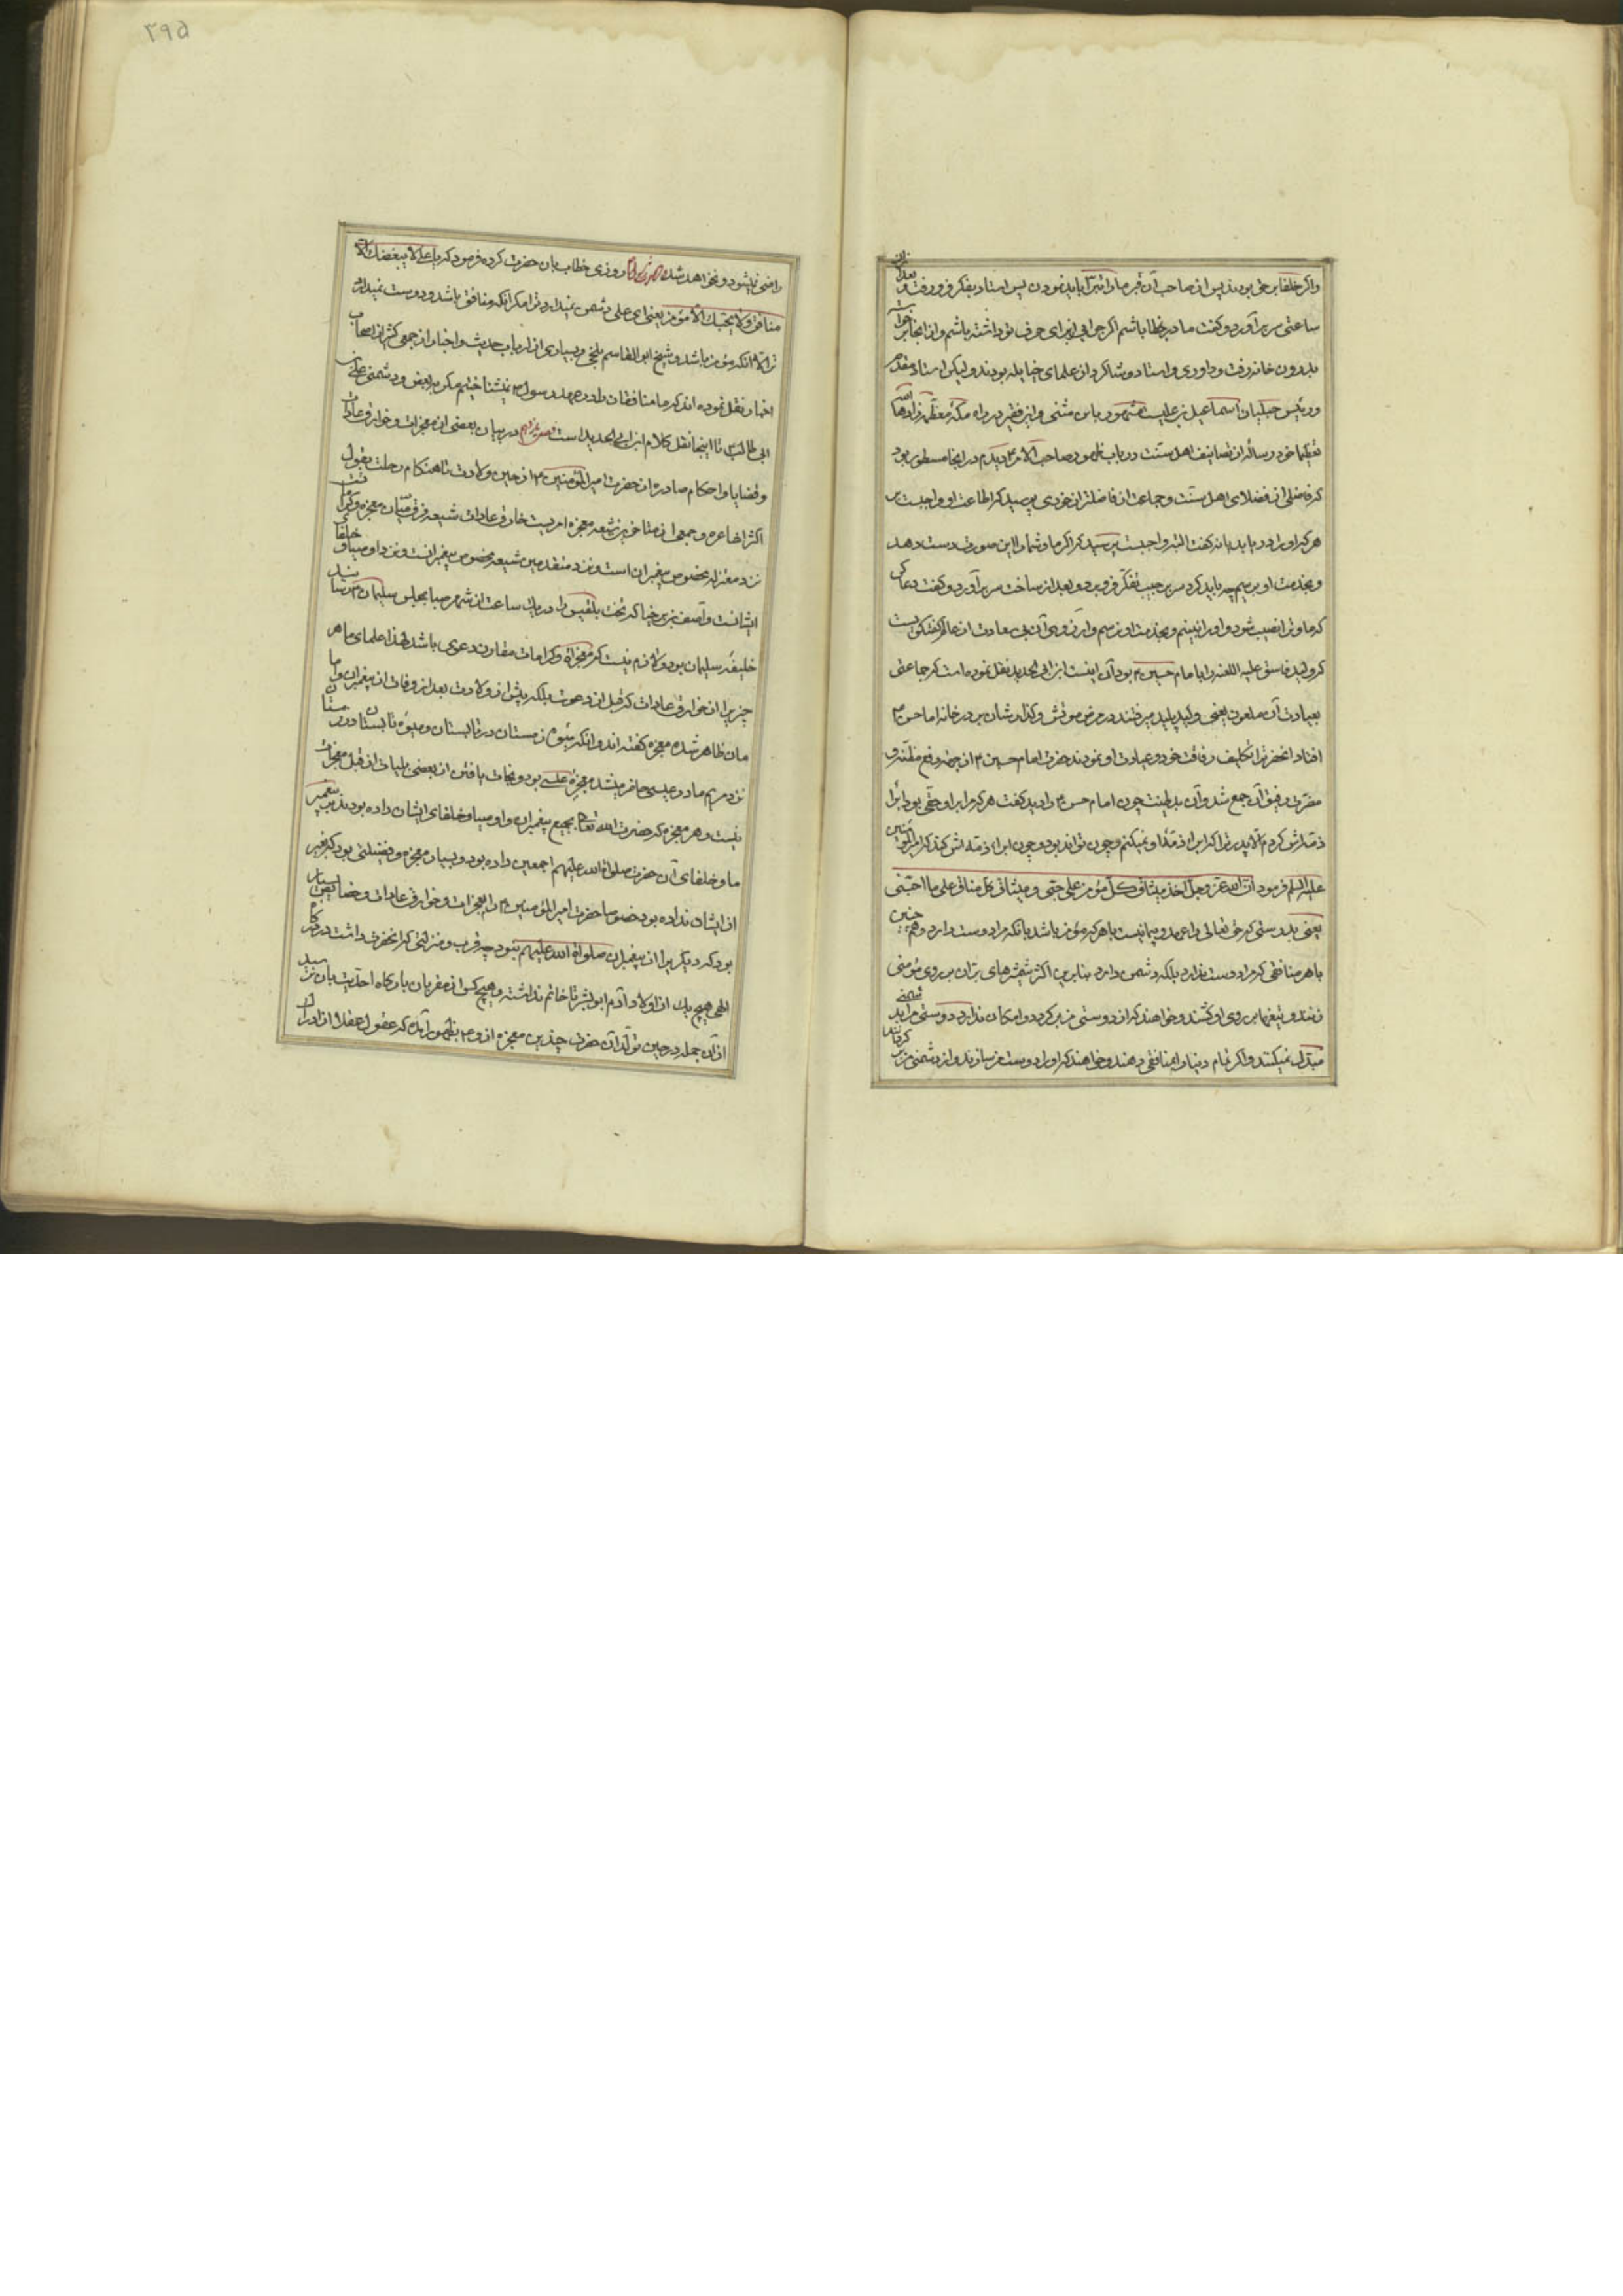 واکر خلفا بر حق بودند پس از صاحب آن قبر ما را تبرا باید نمودن پس استاد بفکر فرو رفت و بعد از آن
ساعتی سر برآورد و کفت ما در خطا باشیم اکر جوابی از برای حرف تو داشته باشیم و از انجا بر خواست
بدرون خانه رفت و داودی و استاد و شاکرد از علمای حنابله بودند و لیکن استاد مقدم
و رئیس حنبلیان اسماعیل بن علیست مشهور باین مثنی و این فقیر در راه مکه معظمه زادها الله
تعظیما خود رساله از تصانیف اهل سنت در باب ظهور صاحب الامر دیدم در انجا مسطور بود
که فاضلی از فضلای اهل سنت و جماعت از فاضلتر از خودی پرسید که اطاعت او واجبست بر
هر که او را دریابد یا نه کفت البته واجبست پرسید که اکر ما و شما را این صورت دست دهد
و بخدمت او برسیم چه باید کرد سر بر جیب تفکر فرو برد و بعد از ساعت سر برآورد و کفت دعا کن
که ما و ترا نصیب نشود و او را نبینیم و بخدمت او نرسیم و آرزوی آن بی سعادت از عالم کفتکوییست
که ولید فاسق علیه اللعنه را با امام حسین بود آن اینست ابن ابی الحدید نقل نموده است که جماعتی
بعیادت آن ملعون یعنی ولید پلید میرفتند در مرض موتش و کذارشان بر در خانه امام حسن
افتاد انحضرت را تکلیف رفاقت خود و عیادت او نمودند حضرت امام حسین از جهت رفع مظنه و
مضرت رفیق آن جمع شد و آن بد طینت چون امام حسن را دید کفت هر که مرا بر او حقی بود ابراء
ذمه اش کردم الا پدر ترا که ابراء ذمه او نمیکنم و چون تواند بود و چون ابراء ذمه اش کند که امیر المؤمنین
علیه السلم فرمود ان الله عز وجل اخذ میثاق کل مؤمن علی حبی و میثاق کل منافق علی ما احبنی
یعنی بدرستی که حق تعالی را عهد و پیمانیست با هر که مؤمن باشد بانکه مرا دوست دارد و همچنین
با هر منافقی که مرا دوست ندارد بلکه دشمن دارد بنابرین اکثر شمشیرهای بران بر روی مؤمنی
زنند و تیغها بر روی او کشند و خواهند که از دوستی من بر کردد امکان ندارد دوستی مرا بدشمنی
مبدل نمیکند و اکر تمام دنیا را بمنافقی دهند و خواهند که او را دوست من سازند و از دشمنی من بر کردانند
۲۹۵
راضی نمیشود و نخواهد شد روزی خطاب بان حضرت کرده فرمود که یا علی لا یبغضک الا
منافق ولا یحبک الا مؤمن یعنی ای علی دشمن نمیدارد ترا مکر انکه منافق باشد و دوست نمیدارد
ترا الا انکه مؤمن باشد و شیخ ابو القاسم بلخی و بسیاری از ارباب حدیث و اخبار از جمعی کثیر از اصحاب
اخبار نقل نموده اند که ما منافقان را در عهد رسول نمیشناختیم مکر ببغض و دشمنی علی بن
ابی طالب تا اینجا نقل کلام ابن ابی الحدید است در بیان بعضی از معجزات و خوارق عادات
و قضایا و احکام صادره از حضرت امیر المؤمنین از حین ولادت تا هنکام رحلت بقول
اکثر اشاعره و جمعی از متاخرین شیعه معجزه امریست خارق عادات شیعه فرق میان معجزه و کرامت
نزد معتزله مخصوص پیغمبران است و نزد متقدمین شیعه مخصوص پیغمبرانست و نزد اوصیا و خلفای
ایشانست و آصف بن برخیا که تخت بلقیس را در یک ساعت از شهر صبا بمجلس سلیمان رسانید
خلیفه سلیمان بود و لازم نیست که معجزه و کرامات مقارن دعوی باشد لهذا علمای ما هر
چیز را از خوارق عادات که قبل از دعوت بلکه پیش از ولادت بعد از وفات از پیغمبران و اما
مان ظاهر شده معجزه کفته اند و انکه میوه زمستان در تابستان و میوه تابستان در زمستان
نزد مریم مادر عیسی حاضر میشد معجزه عیسی بود و نجات یافتن از بعضی بلیات از قبل معجزات
نیست و هر معجزه که حضرت الله تعالی بجمیع پیغمبران و اوصیا و خلفای ایشان داده بود به پیغمبر
ما و خلفای آن حضرت صلواة الله علیهم اجمعین داده بود و بسیار معجزه و فضیلتی بود که بغیر
از ایشان نداده بود خصوصا حضرت امیر المؤمنین را معجزات و خوارق عادات و خصایص بسیار
بود که دیکری را از پیغمبران صلواة الله علیهم نبود چه قرب و منزلتی که انحضرت داشت در درکاه
الهی هیچ یک از اولاد آدم ابو البشر تا خاتم نداشته و هیچ کس از مقربان بارکاه احدیت بان نرسید
از آن جمله در حین تولد آن حضرت چندین معجزه از وی بظهور آمده که عقول عقلا از ادراک